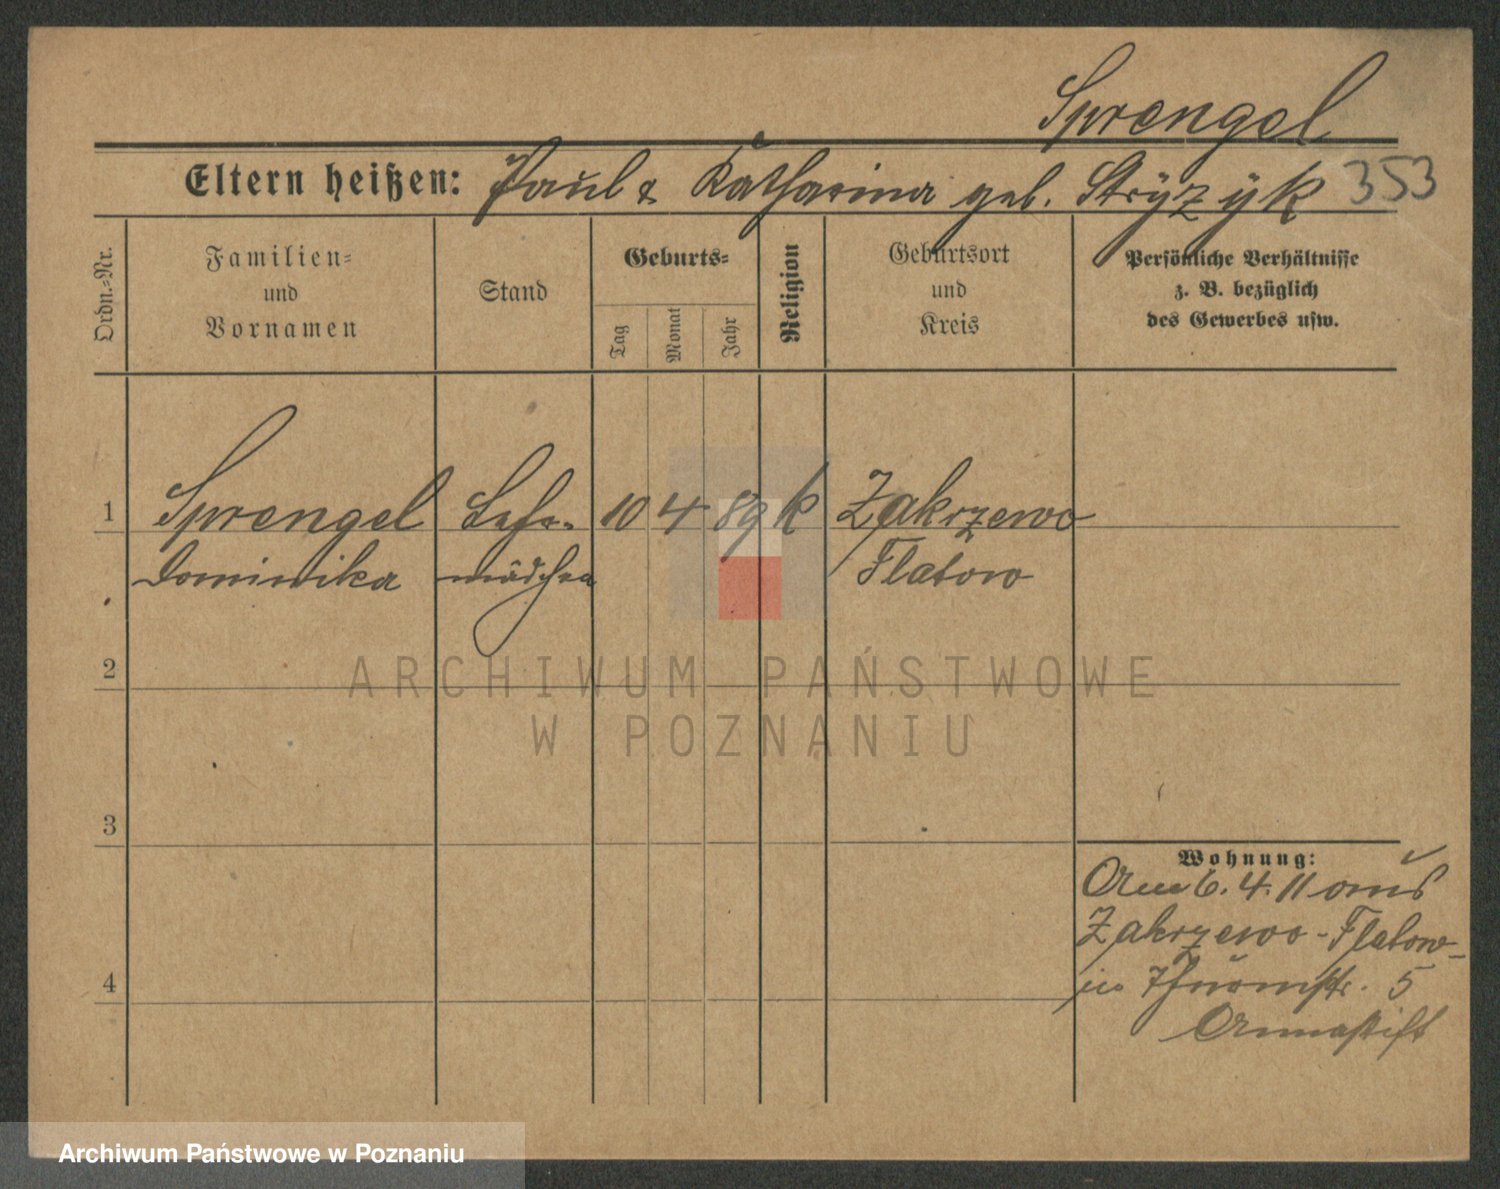 Sprengel
Eltern heißen: Paul & Katharina geb. Stryzyk 353
Ordn.-Nr.
Familien-
und
Vornamen
Stand
Geburts-
Tag
Monat
Jahr
Religion
Geburtsort
und
Kreis
Persönliche Verhältnisse
z. B. bezüglich
des Gewerbes usw.
1 Sprengel Lehr- 10 4 89 k Zakrzewo
Dominika mädchen Flatow
2
3
4
Wohnung:
Am 6. 4. 11 aus
Zakrzewo-Flatow
in Thurmstr. 5
Annastift
ARCHIWUM PAŃSTWOWE
W POZNANIU
Archiwum Państwowe w Poznaniu